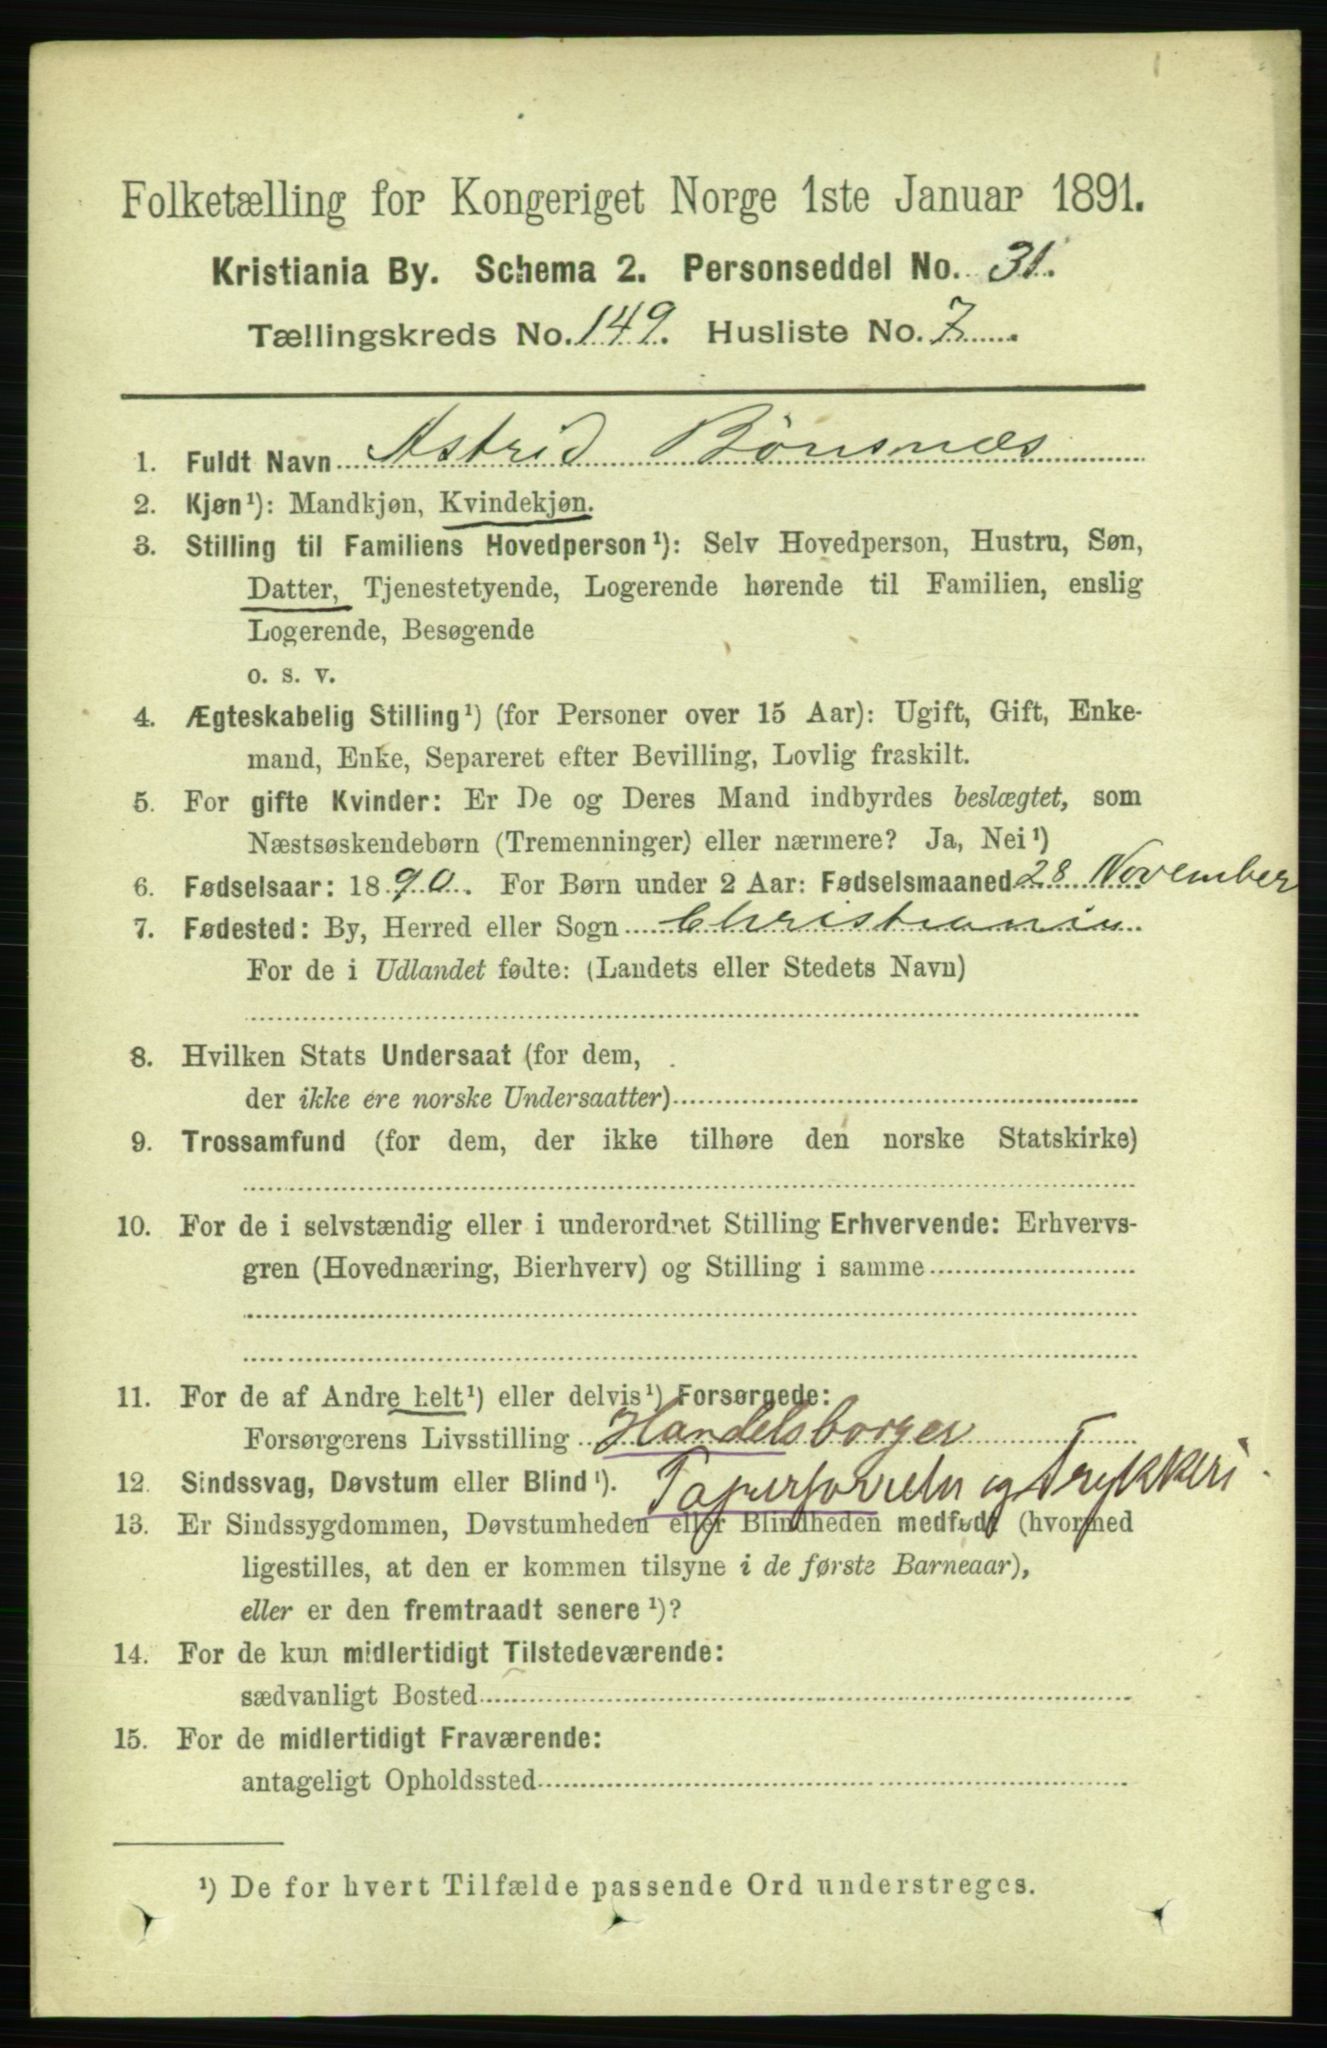 Folketælling for Kongeriget Norge 1ste Januar 1891.
Kristiania By. Schema 2. Personseddel No. 31.
Tællingskreds No. 149. Husliste No. 7
1. Fuldt Navn Astrid Bönsnæs
2. Kjøn¹): Mandkjøn, Kvindekjøn.
3. Stilling til Familiens Hovedperson¹): Selv Hovedperson, Hustru, Søn,
Datter, Tjenestetyende, Logerende hørende til Familien, enslig
Logerende, Besøgende
o. s. v.
4. Ægteskabelig Stilling¹) (for Personer over 15 Aar): Ugift, Gift, Enke-
mand, Enke, Separeret efter Bevilling, Lovlig fraskilt.
5. For gifte Kvinder: Er De og Deres Mand indbyrdes beslægtet, som
Næstsøskendebørn (Tremenninger) eller nærmere? Ja, Nei¹)
6. Fødselsaar: 1890. For Børn under 2 Aar: Fødselsmaaned 28 November
7. Fødested: By, Herred eller Sogn Christiania
For de i Udlandet fødte: (Landets eller Stedets Navn)
8. Hvilken Stats Undersaat (for dem,
der ikke ere norske Undersaatter)
9. Trossamfund (for dem, der ikke tilhøre den norske Statskirke)
10. For de i selvstændig eller i underordnet Stilling Erhvervende: Erhvervs-
gren (Hovednæring, Bierhverv) og Stilling i samme
11. For de af Andre helt¹) eller delvis¹) Forsørgede:
Forsørgerens Livsstilling Handelsborger
12. Sindssvag, Døvstum eller Blind¹). Papirforretn og Trykkeri
13. Er Sindssygdommen, Døvstumheden eller Blindheden medfødt (hvormed
ligestilles, at den er kommen tilsyne i de første Barneaar),
eller er den fremtraadt senere¹)?
14. For de kun midlertidigt Tilstedeværende:
sædvanligt Bosted
15. For de midlertidigt Fraværende:
antageligt Opholdssted
¹) De for hvert Tilfælde passende Ord understreges.